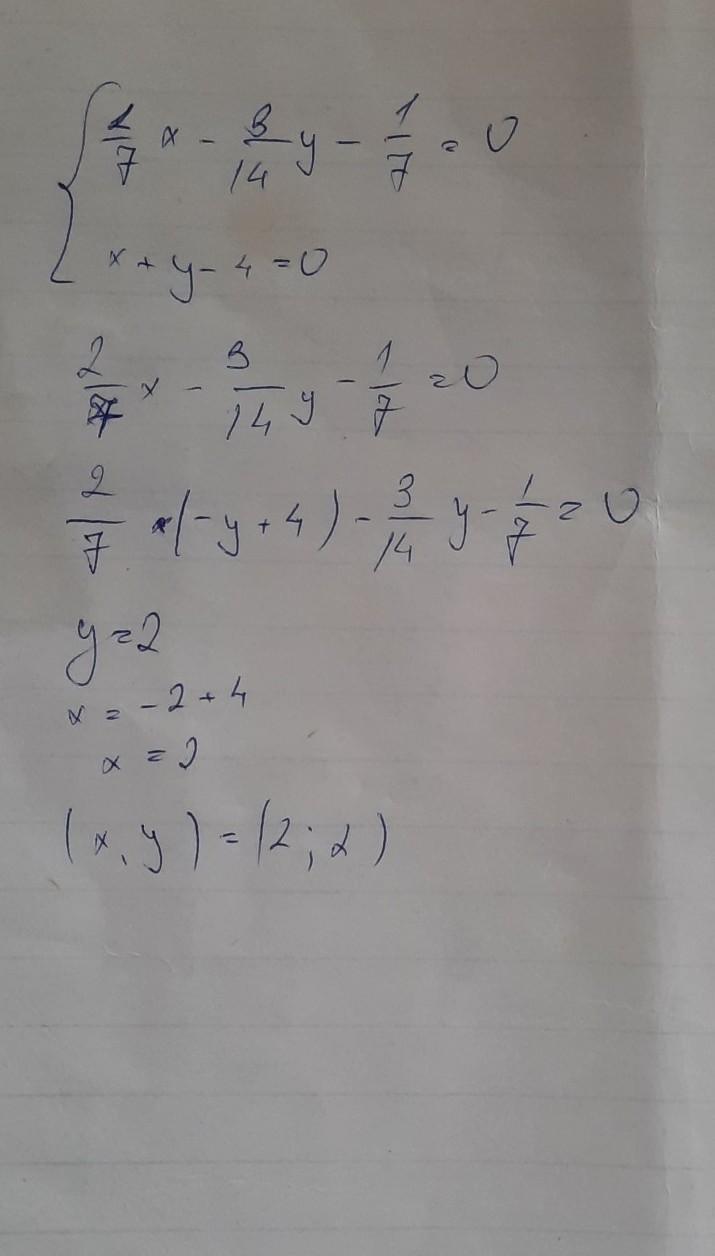 2/7 x - 3/14 y - 1/7 = 0
x + y - 4 = 0
2/7 x - 3/14 y - 1/7 = 0
2/7 · (-y + 4) - 3/14 y - 1/7 = 0
y = 2
x = -2 + 4
x = 2
(x, y) = (2; 2)